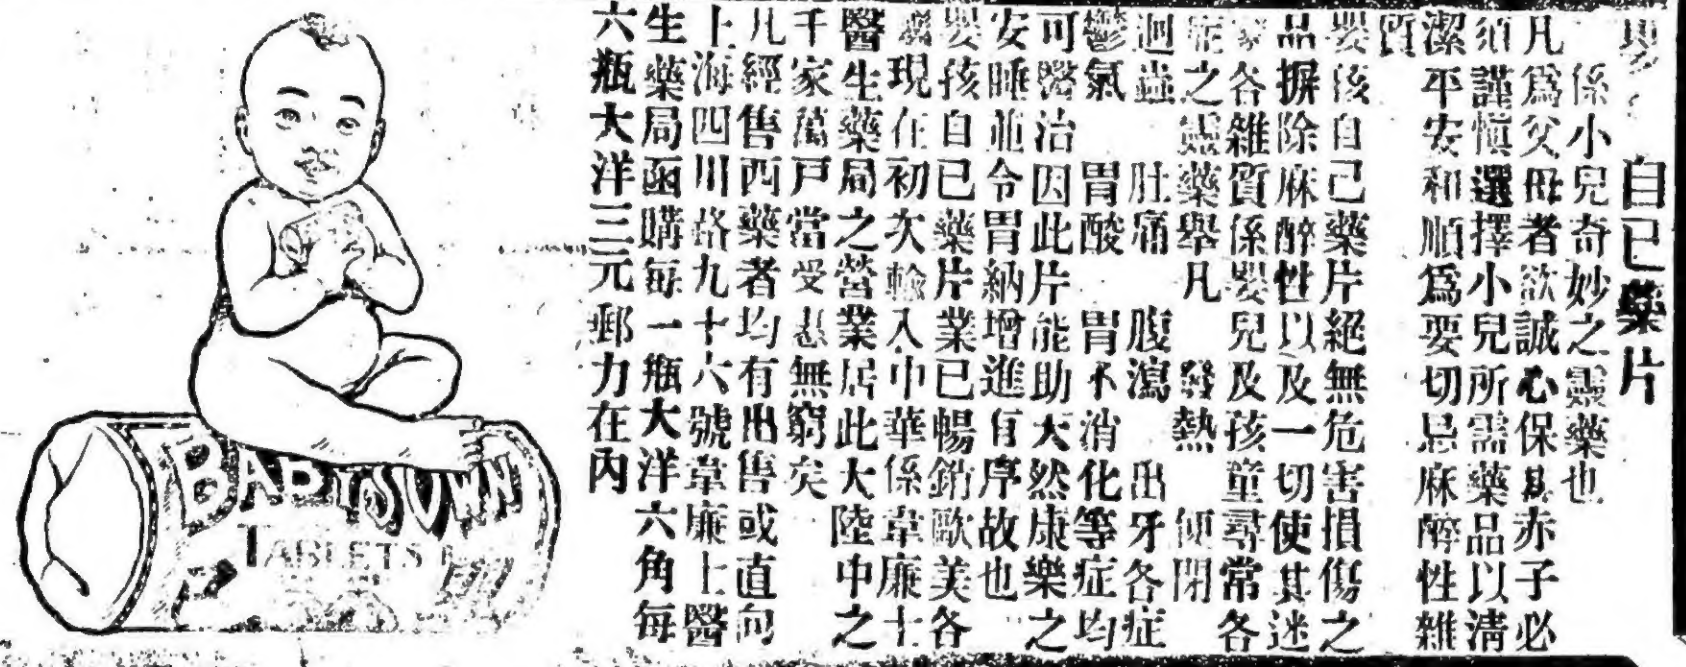 嬰孩自己藥片
係小兒奇妙之靈藥也
凡爲父母者欲誠心保其赤子必
須謹愼選擇小兒所需藥品以淸
潔平安和順爲要切忌麻醉性雜
質
嬰孩自己藥片絕無危害損傷之
品摒除麻醉性以及一切使其迷
蒙各雜質係嬰兒及孩童尋常各
症之靈藥舉凡 發熱 便閉
迴蟲 肚痛 腹瀉 出牙各症
鬱氣 胃酸 胃不消化等症均
可醫治因此片能助天然康樂之
安睡並令胃納增進有序故也
嬰孩自己藥片業已暢銷歐美各
國現在初次輸入中華係韋廉士
醫生藥局之營業居此大陸中之
千家萬戶當受惠無窮矣
凡經售西藥者均有出售或直向
上海四川路九十六號韋廉士醫
生藥局函購每一瓶大洋六角每
六瓶大洋三元郵力在內
BABY'S OWN
TABLETS